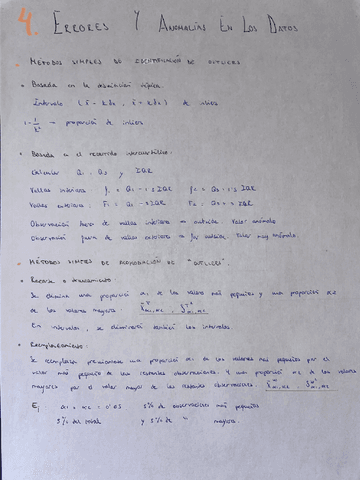 4. ERRORES Y ANOMALÍAS EN LOS DATOS
MÉTODOS SIMPLES DE IDENTIFICACIÓN DE OUTLIERS
Basada en la desviación típica.
Intervalo (x̄ - k s, x̄ + k s) de inliers
1 - 1/k² → proporción de inliers
Basada en el recorrido intercuartílico.
Calcular Q1, Q3 y IQR
Vallas interiores f1 = Q1 - 1'5 IQR f2 = Q3 + 1'5 IQR
Vallas exteriores: F1 = Q1 - 3 IQR F2 = Q3 + 3 IQR
Observación fuera de vallas interiores → outside. Valor anómalo.
Observación fuera de vallas exteriores → far outside. Valor muy anómalo.
MÉTODOS SIMPLES DE ACOMODACIÓN DE "OUTLIERS".
Recorte o truncamiento:
Se elimina una proporción α1 de los valores más pequeños y una proporción α2
de los valores mayores
En intervalos, se eliminarán también los intervalos.
Reemplazamiento:
Se reemplaza previamente una proporción α1 de los valores más pequeños por el
valor más pequeño de las restantes observaciones. Y una proporción α2 de los valores
mayores por el valor mayor de las restantes observaciones.
Ej α1 = α2 = 0'05 5% de observaciones más pequeñas
5% del total y 5% de " mayores.